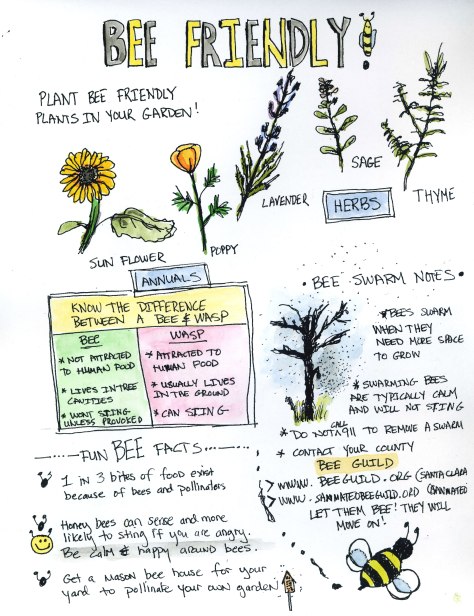 BEE FRIENDLY!
PLANT BEE FRIENDLY
PLANTS IN YOUR GARDEN!
SUN FLOWER
POPPY
LAVENDER
SAGE
THYME
HERBS
ANNUALS
KNOW THE DIFFERENCE
BETWEEN A BEE & WASP
BEE
* NOT ATTRACTED
TO HUMAN FOOD
* LIVES IN TREE
CAVITIES
* WONT STING
UNLESS PROVOKED
WASP
* ATTRACTED TO
HUMAN FOOD
* USUALLY LIVES
IN THE GROUND
* CAN STING
• BEE SWARM NOTES •
* BEES SWARM
WHEN THEY
NEED MORE SPACE
TO GROW
* SWARMING BEES
ARE TYPICALLY CALM
AND WILL NOT STING
* DO NOT CALL 911 TO REMOVE A SWARM
* CONTACT YOUR COUNTY
BEE GUILD
> WWW. BEEGUILD.ORG (SANTA CLARA
> WWW. SANMATEOBEEGUILD.ORD (SANMATEO
LET THEM BEE! THEY WILL
MOVE ON!
FUN BEE FACTS...
1 in 3 bites of food exist
because of bees and pollinators
Honey bees can sense and more
likely to sting if you are angry.
Be calm & happy around bees.
Get a mason bee house for your
yard to pollinate your own garden